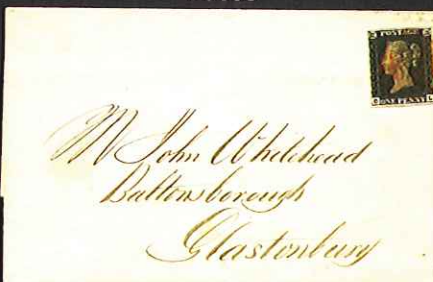 POSTAGE
ONE PENNY
Mr John Whitehead
Baltonsborough
Glastonbury